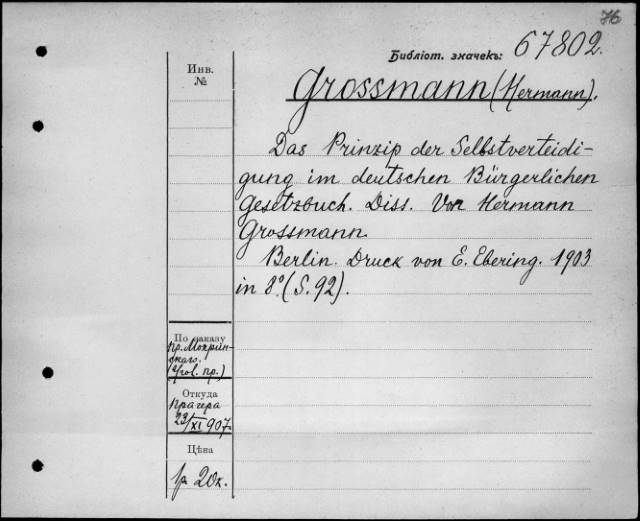 76
Библіот. значекъ: 67802.
Инв.
№
Grossmann (Hermann).
Das Prinzip der Selbstverteidi-
gung im deutschen Bürgerlichen
Gesetzbuch. Diss. Von Hermann
Grossmann.
Berlin. Druck von E. Ebering. 1903
in 8º. (S. 92).
По заказу
пр. Мокрин-
скаго.
(угол. пр.)
Откуда
Прагера
23/XI 907.
Цѣна
1р 20к.